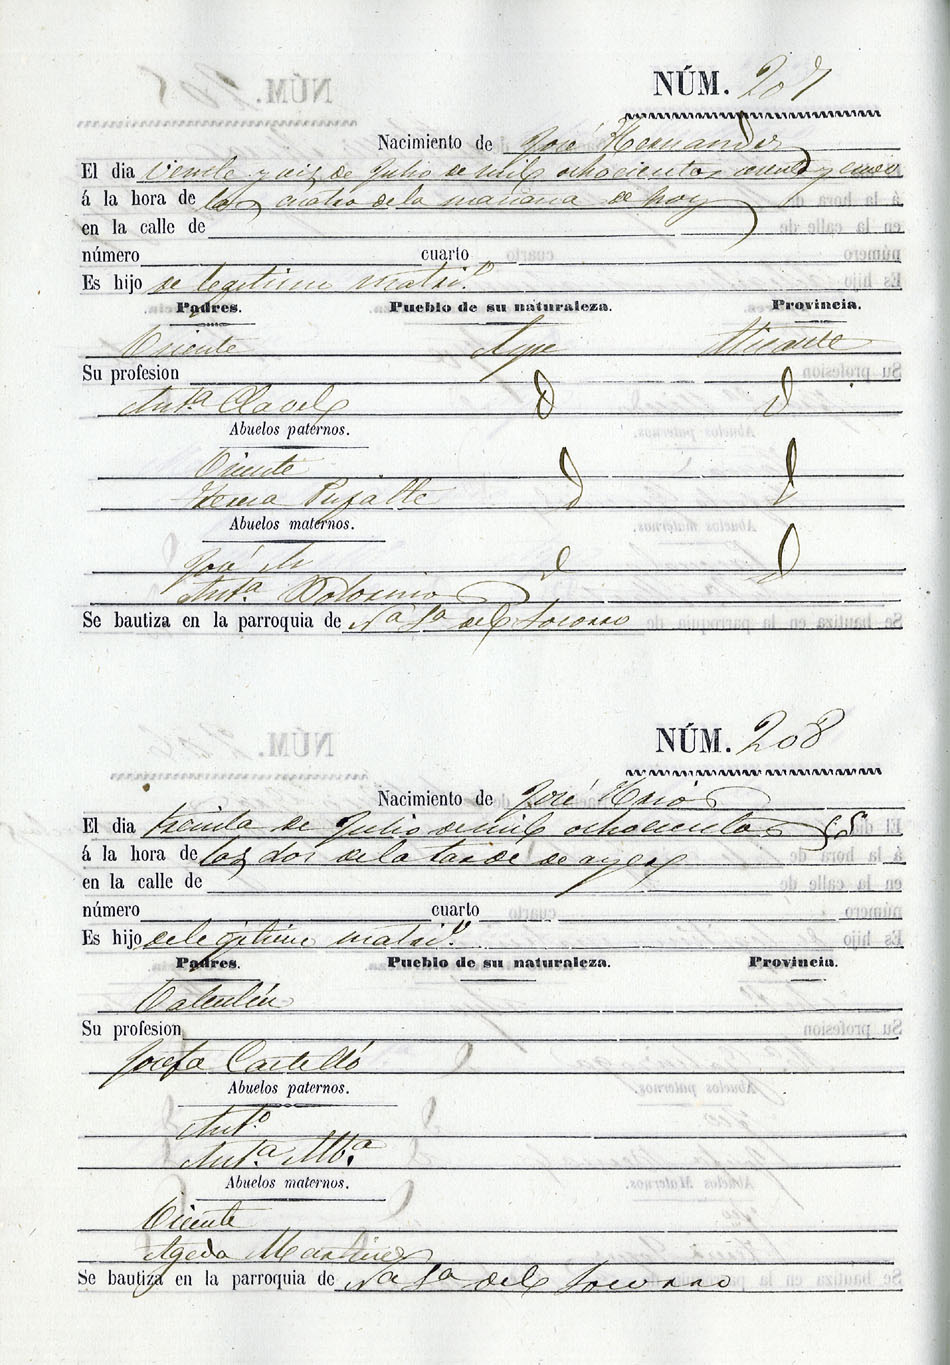 NÚM. 207
Nacimiento de José Hernandez
El dia veinte y seis de Julio de mil ochocientos cuarenta y cinco
á la hora de las cuatro de la mañana de hoy
en la calle de
número cuarto
Es hijo de legitimo matri.º
Padres. Pueblo de su naturaleza. Provincia.
Vicente Aspe Alicante
Su profesion
Ant.ª Clavel
Abuelos paternos.
Vicente
Teresa Pujalte
Abuelos maternos.
José
Ant.ª
Se bautiza en la parroquia de Nª Sª del Socorro
NÚM. 208
Nacimiento de José
El dia treinta de Julio de mil ochocientos 45
á la hora de las dos de la tarde de ayer
en la calle de
número cuarto
Es hijo de legitimo matri.º
Padres. Pueblo de su naturaleza. Provincia.
Valentin
Su profesion
Josefa Castelló
Abuelos paternos.
Ant.º
Ant.ª
Abuelos maternos.
Vicente
Ageda Martinez
Se bautiza en la parroquia de Nª Sª del Socorro